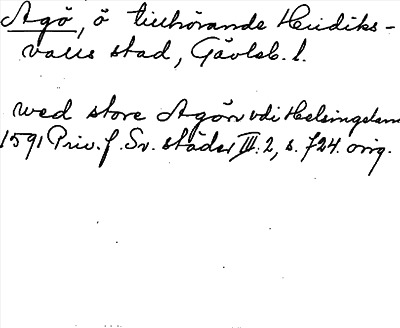 Agö, ö tillhörande Hudiks-
valls stad, Gävleb. l.
wed store Agön vdi Helsingelann
1591 Priv. f. Sv. städer III: 2, s. 724. orig.